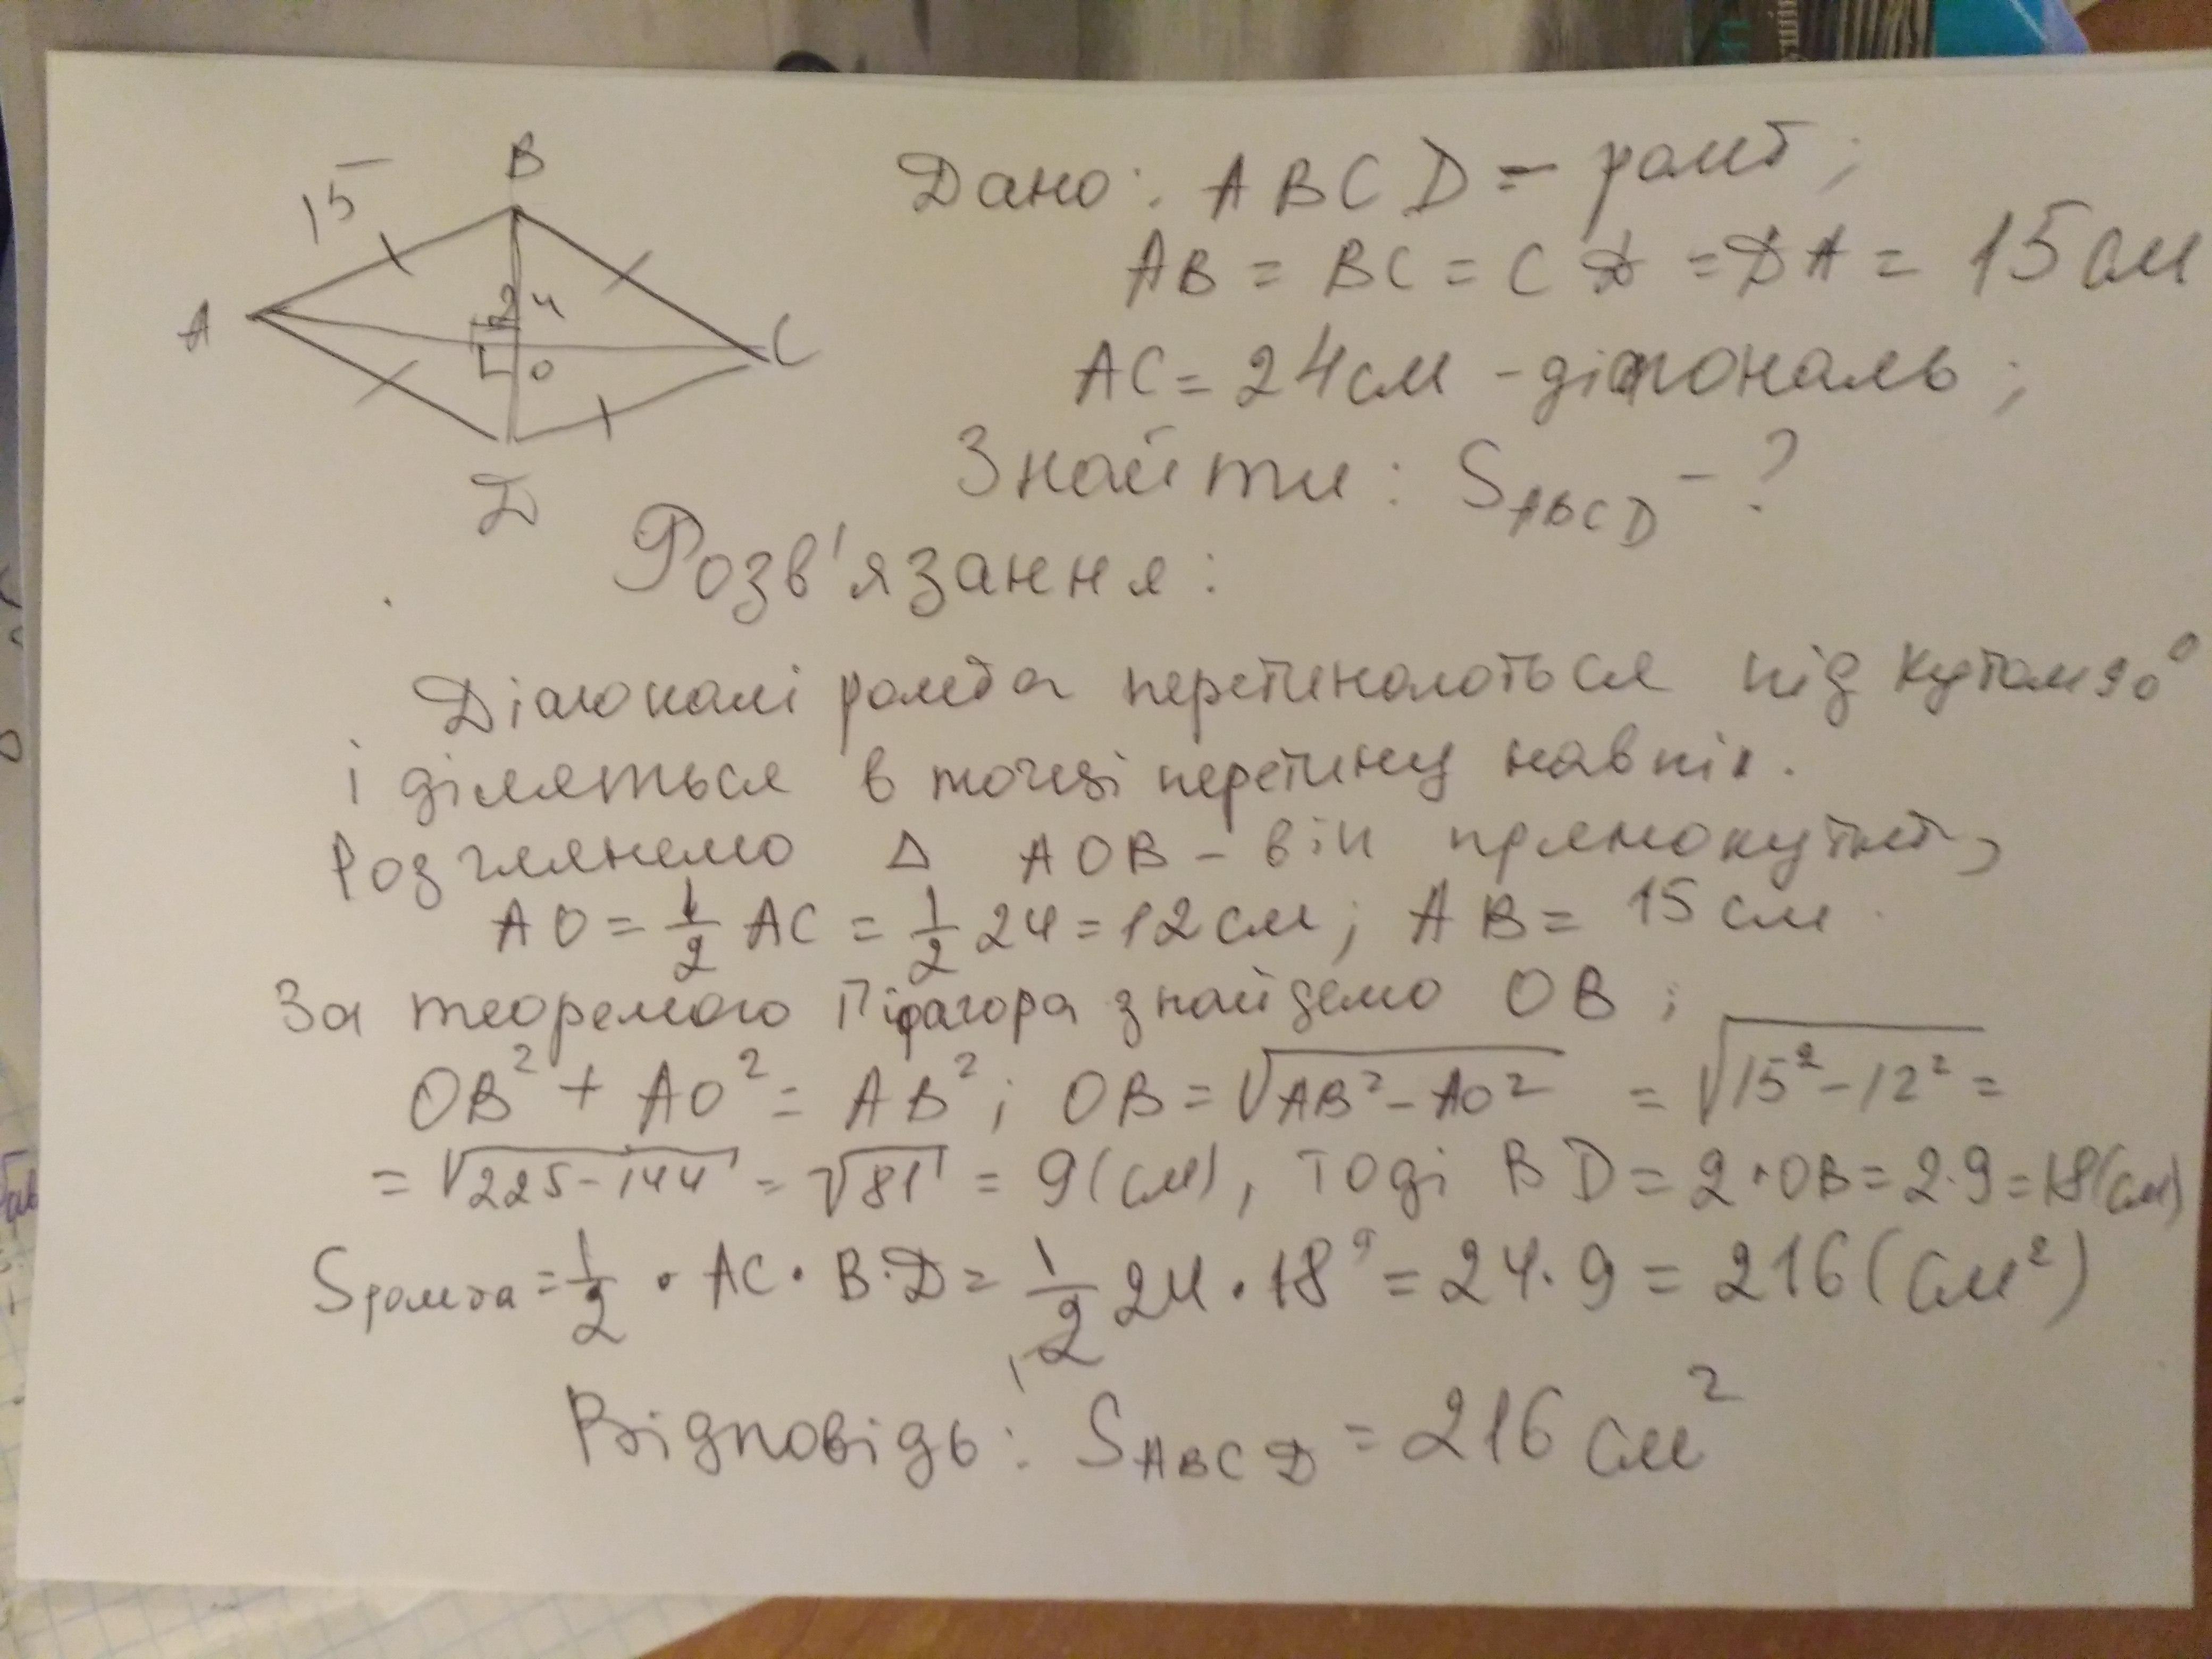 B
15
24
A
C
O
D
Дано: ABCD - ромб;
AB = BC = CD = DA = 15 см
AC = 24 см - діагональ;
Знайти: S_ABCD - ?
Розв'язання:
Діагоналі ромба перетинаються під кутом 90°
і діляться в точці перетину навпіл.
Розглянемо Δ AOB - він прямокутній,
AO = 1/2 AC = 1/2 24 = 12 см; AB = 15 см.
За теоремою Піфагора знайдемо OB;
OB² + AO² = AB²; OB = √(AB² - AO²) = √(15² - 12²) =
= √(225 - 144) = √81 = 9 (см), тоді BD = 2 · OB = 2 · 9 = 18 (см)
S_ромба = 1/2 · AC · B·D = 1/2 24 · 18 ⁹ = 24 · 9 = 216 (см²)
1
Відповідь: S_ABCD = 216 см²